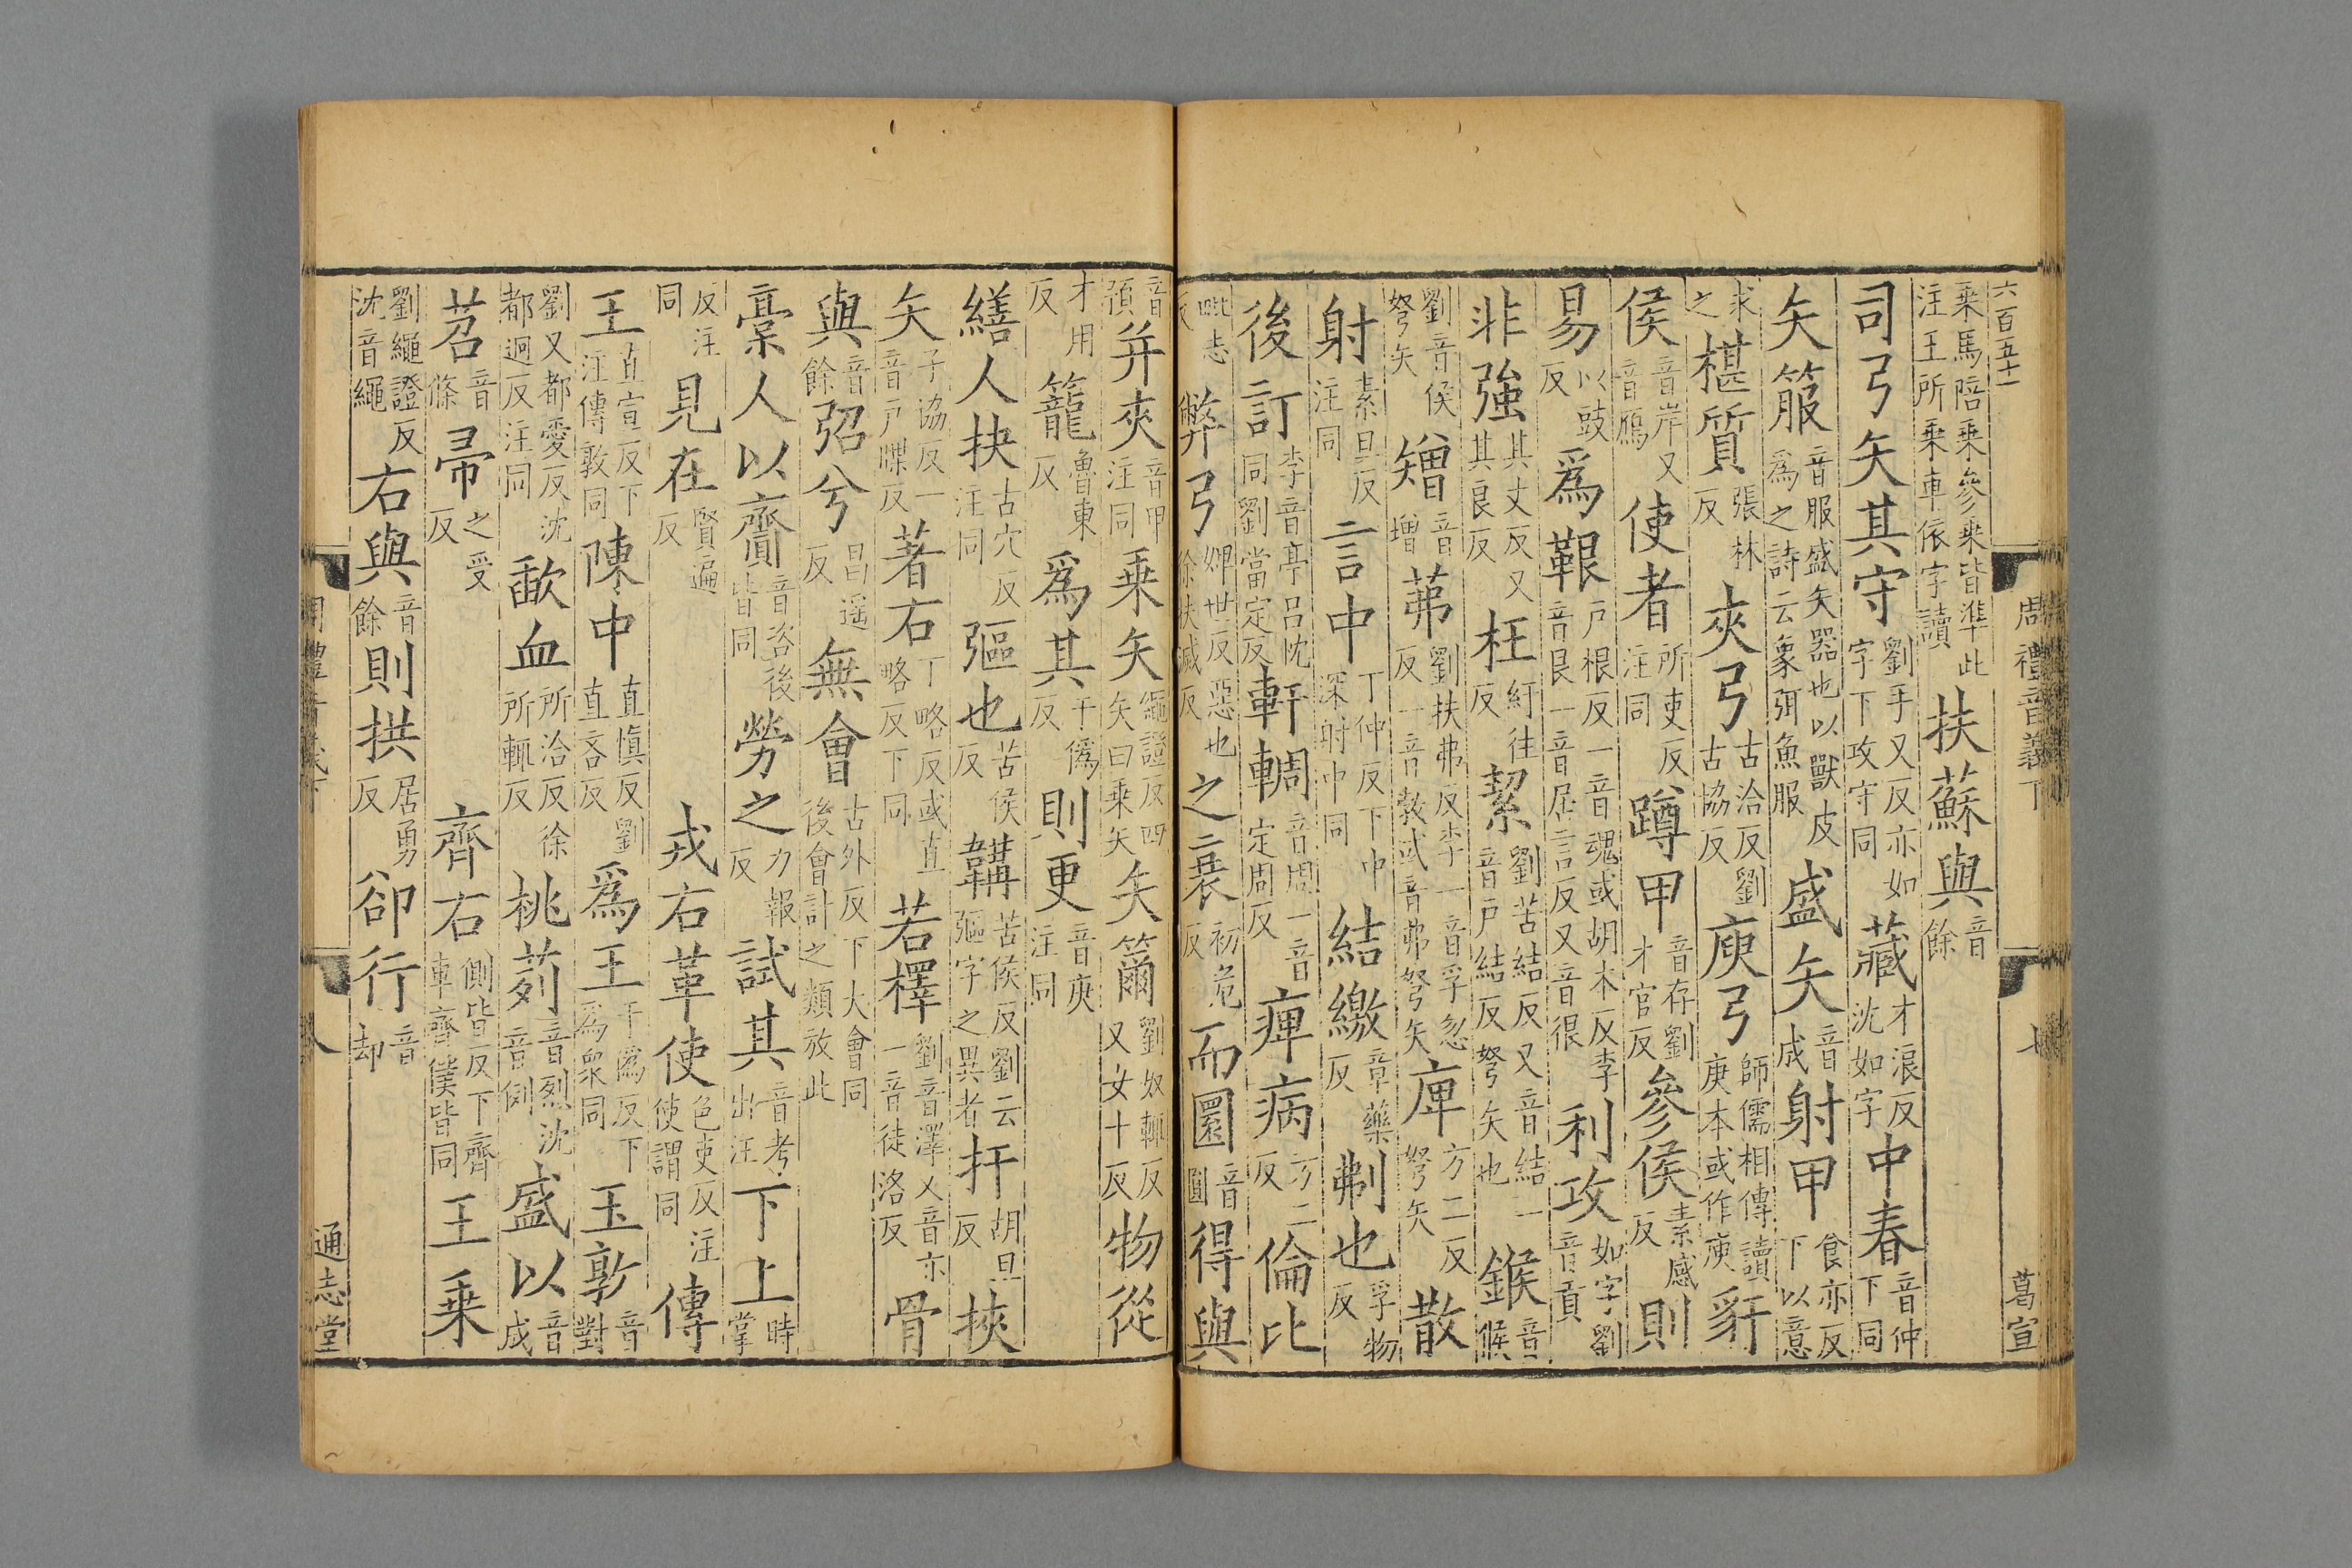 六百五十一
周禮音義下
七
葛宣
乘馬陪乘參乘皆準此注王所乘車依字讀扶蘇與音餘
司弓矢其守劉手又反亦如字下攻守同藏才浪反沈如字中春音仲下同
矢箙音服盛矢器也以獸皮爲之詩云象弭魚服盛矢音成射甲食亦反下以意
求之椹質張林反夾弓古洽反劉古協反庾弓師儒相傳讀庾本或作庾豻
侯音岸又音鴈使者所吏反注同蹲甲音存劉才官反參侯素感反則
易以豉反爲艱戸根反一音魂或胡本反李音艮一音居言反又音很利攻如字劉音貢
非強其丈反又其良反枉紆往反絜劉苦結反又音結一音戸結反弩矢也鍭音候
劉音侯弩矢矰音增茀劉扶弗反李一音孚忽反一音敎或音弗弩矢庳方二反弩矢散
射素旦反注同言中丁仲反下中深射中同結繳章藥反刜也孚物反
後訂李音亭呂忱同劉當定反軒輖音周一音定周反痺病方二反倫比
毗志反弊弓婢世反惡也徐扶滅反之衰初危反而圜音圓得與
音預并夾音甲注同乘矢繩證反四矢曰乘矢矢籋劉奴輒反又女十反物從
才用反籠魯東反爲其于僞反則更音庚注同
繕人抉古穴反注同彄也苦侯反韝苦侯反劉云彄字之異者扞胡旦反挾
矢子協反一音戸牒反著右丁略反或直略反下同若檡劉音澤又音亦一音徒洛反骨
與音餘弨兮昌遥反無會古外反下大會同後會計之類放此
槀人以齎音咨後皆同勞之力報反試其音考出注下上時掌
反注同見在賢遍反戎右革使色吏反注使謂同傳
王直宣反下注傳敦同陳中直愼反劉直吝反爲王于僞反下爲衆同玉敦音對
劉又都愛反沈都迴反注同歃血所洽反徐所輒反桃茢音烈沈音例盛以音成
苕音條帚之受反齊右側皆反下齊車齊僕皆同王乘
劉繩證反沈音繩右與音餘則拱居勇反卻行音却
周禮音義下
八
通志堂